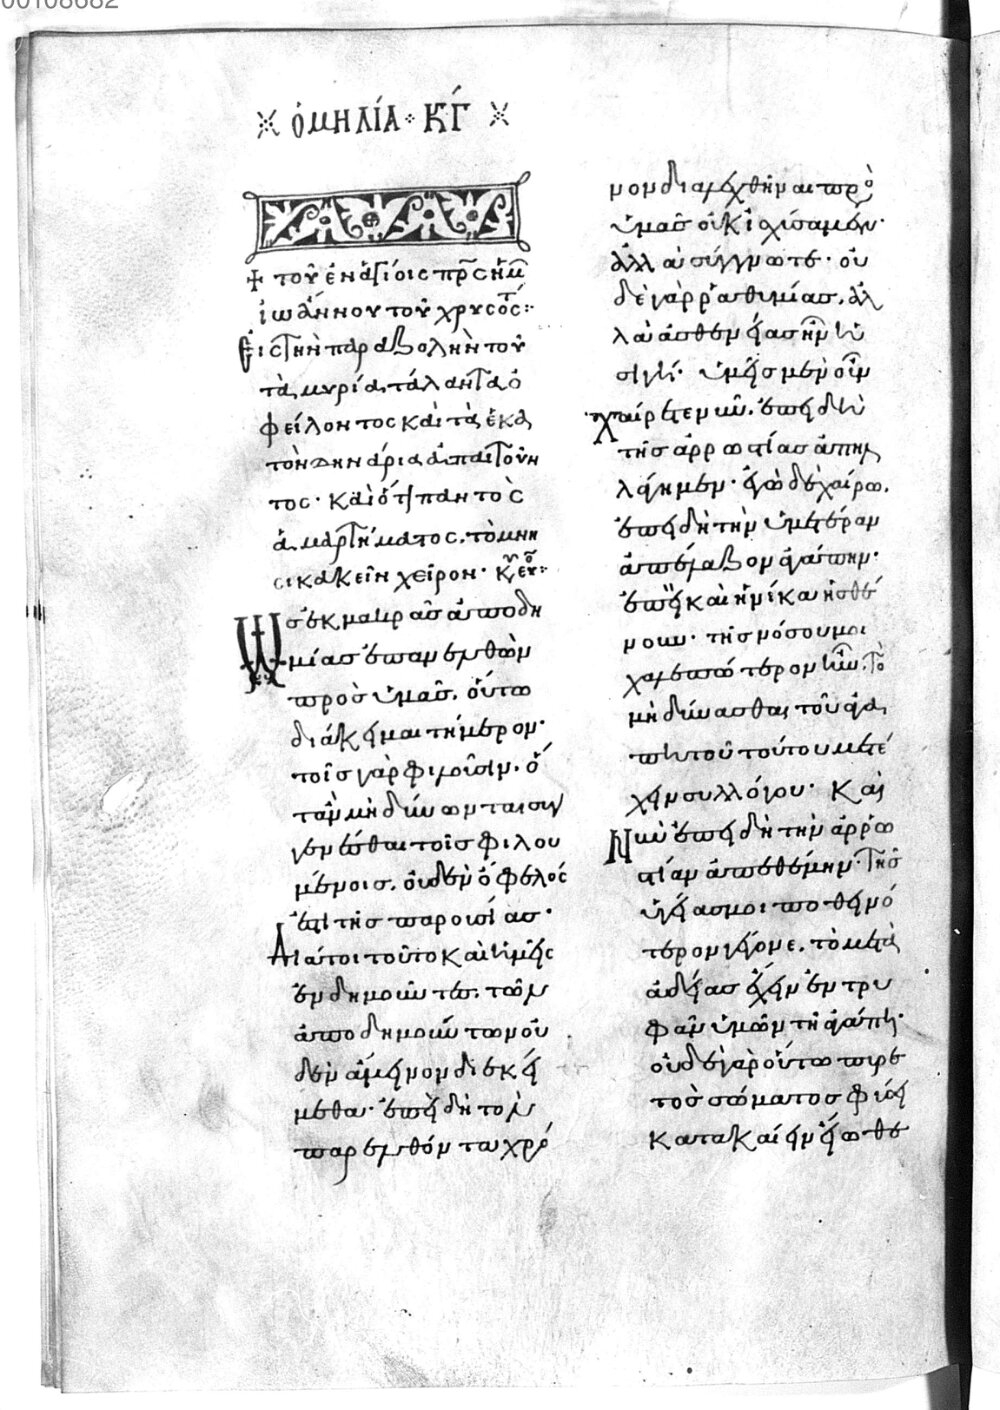 00108682
ὁμηλία κγ́
+ τοῦ ἐν ἁγίοις πρ̅ς ἡμῶ
ἰωάννου τοῦ χρυσοστ
εἰς τὴν παραβολὴν τοῦ
τὰ μυρία τάλαντα ὀ
φείλοντος καὶ τὰ ἑκα
τὸν δηνάρια ἀπαιτοῦν
τος· καὶ ὅτι παντὸς
ἁμαρτήματος, τὸ μνη
σικακεῖν χεῖρον·
Ὡς ἐκ μακρᾶς ἀποδη
μίας ἐπανελθὼν
πρὸς ὑμᾶς, οὕτω
διάκειμαι τήμερον·
τοῖς γὰρ φιλοῦσιν, ὅ
ταν μὴ δύνωνται συγ
γενέσθαι τοῖς φιλου
μένοις, οὐδὲν ὄφελος
ἐπὶ τῆς παρουσίας·
Διάτοι τοῦτο καὶ ἡμεῖς
ἐνδημοῦντες, τῶν
ἀποδημούντων οὐ
δὲν ἄμεινον διεκεί
μεθα· ἐπειδὴ τὸν
παρελθόντα χρό
νον διαλεχθῆναι πρὸ
ὑμᾶς οὐκ ἰσχύσαμεν·
ἀλλὰ σύγγνωτε· οὐ
δὲ γὰρ ῥαθυμίας, ἀλ
λὰ ἀσθενείας ἦν ἡ
σιγή· ὑμεῖς μὲν οὖν
χαίρετε νῦν, ἐπειδὴ
τῆς ἀρρωστίας ἀπηλ
λάγημεν· ἐγὼ δὲ χαίρω,
ἐπειδὴ τὴν ὑμετέραν
ἀπέλαβον ἀγάπην·
ἐπεὶ καὶ ἡνίκα ἠσθέ
νουν· τῆς νόσου μοι
χαλεπώτερον ἦν, τὸ
μὴ δύνασθαι τοῦ ἀγα
πητοῦ τούτου μετέ
χειν συλλόγου· Καὶ
νῦν ἐπειδὴ τὴν ἀρρω
στίαν ἀπεθέμην· τῆς
ὑγείας μοι ποθεινό
τερον γέγονε, τὸ μετὰ
ἀδείας ἔχειν ἐντρυ
φᾶν ὑμῶν τῇ ἀγάπῃ·
οὐδὲ γὰρ οὕτω πυρε
τὸς σώματος φύσει
κατακαίειν εἴωθε